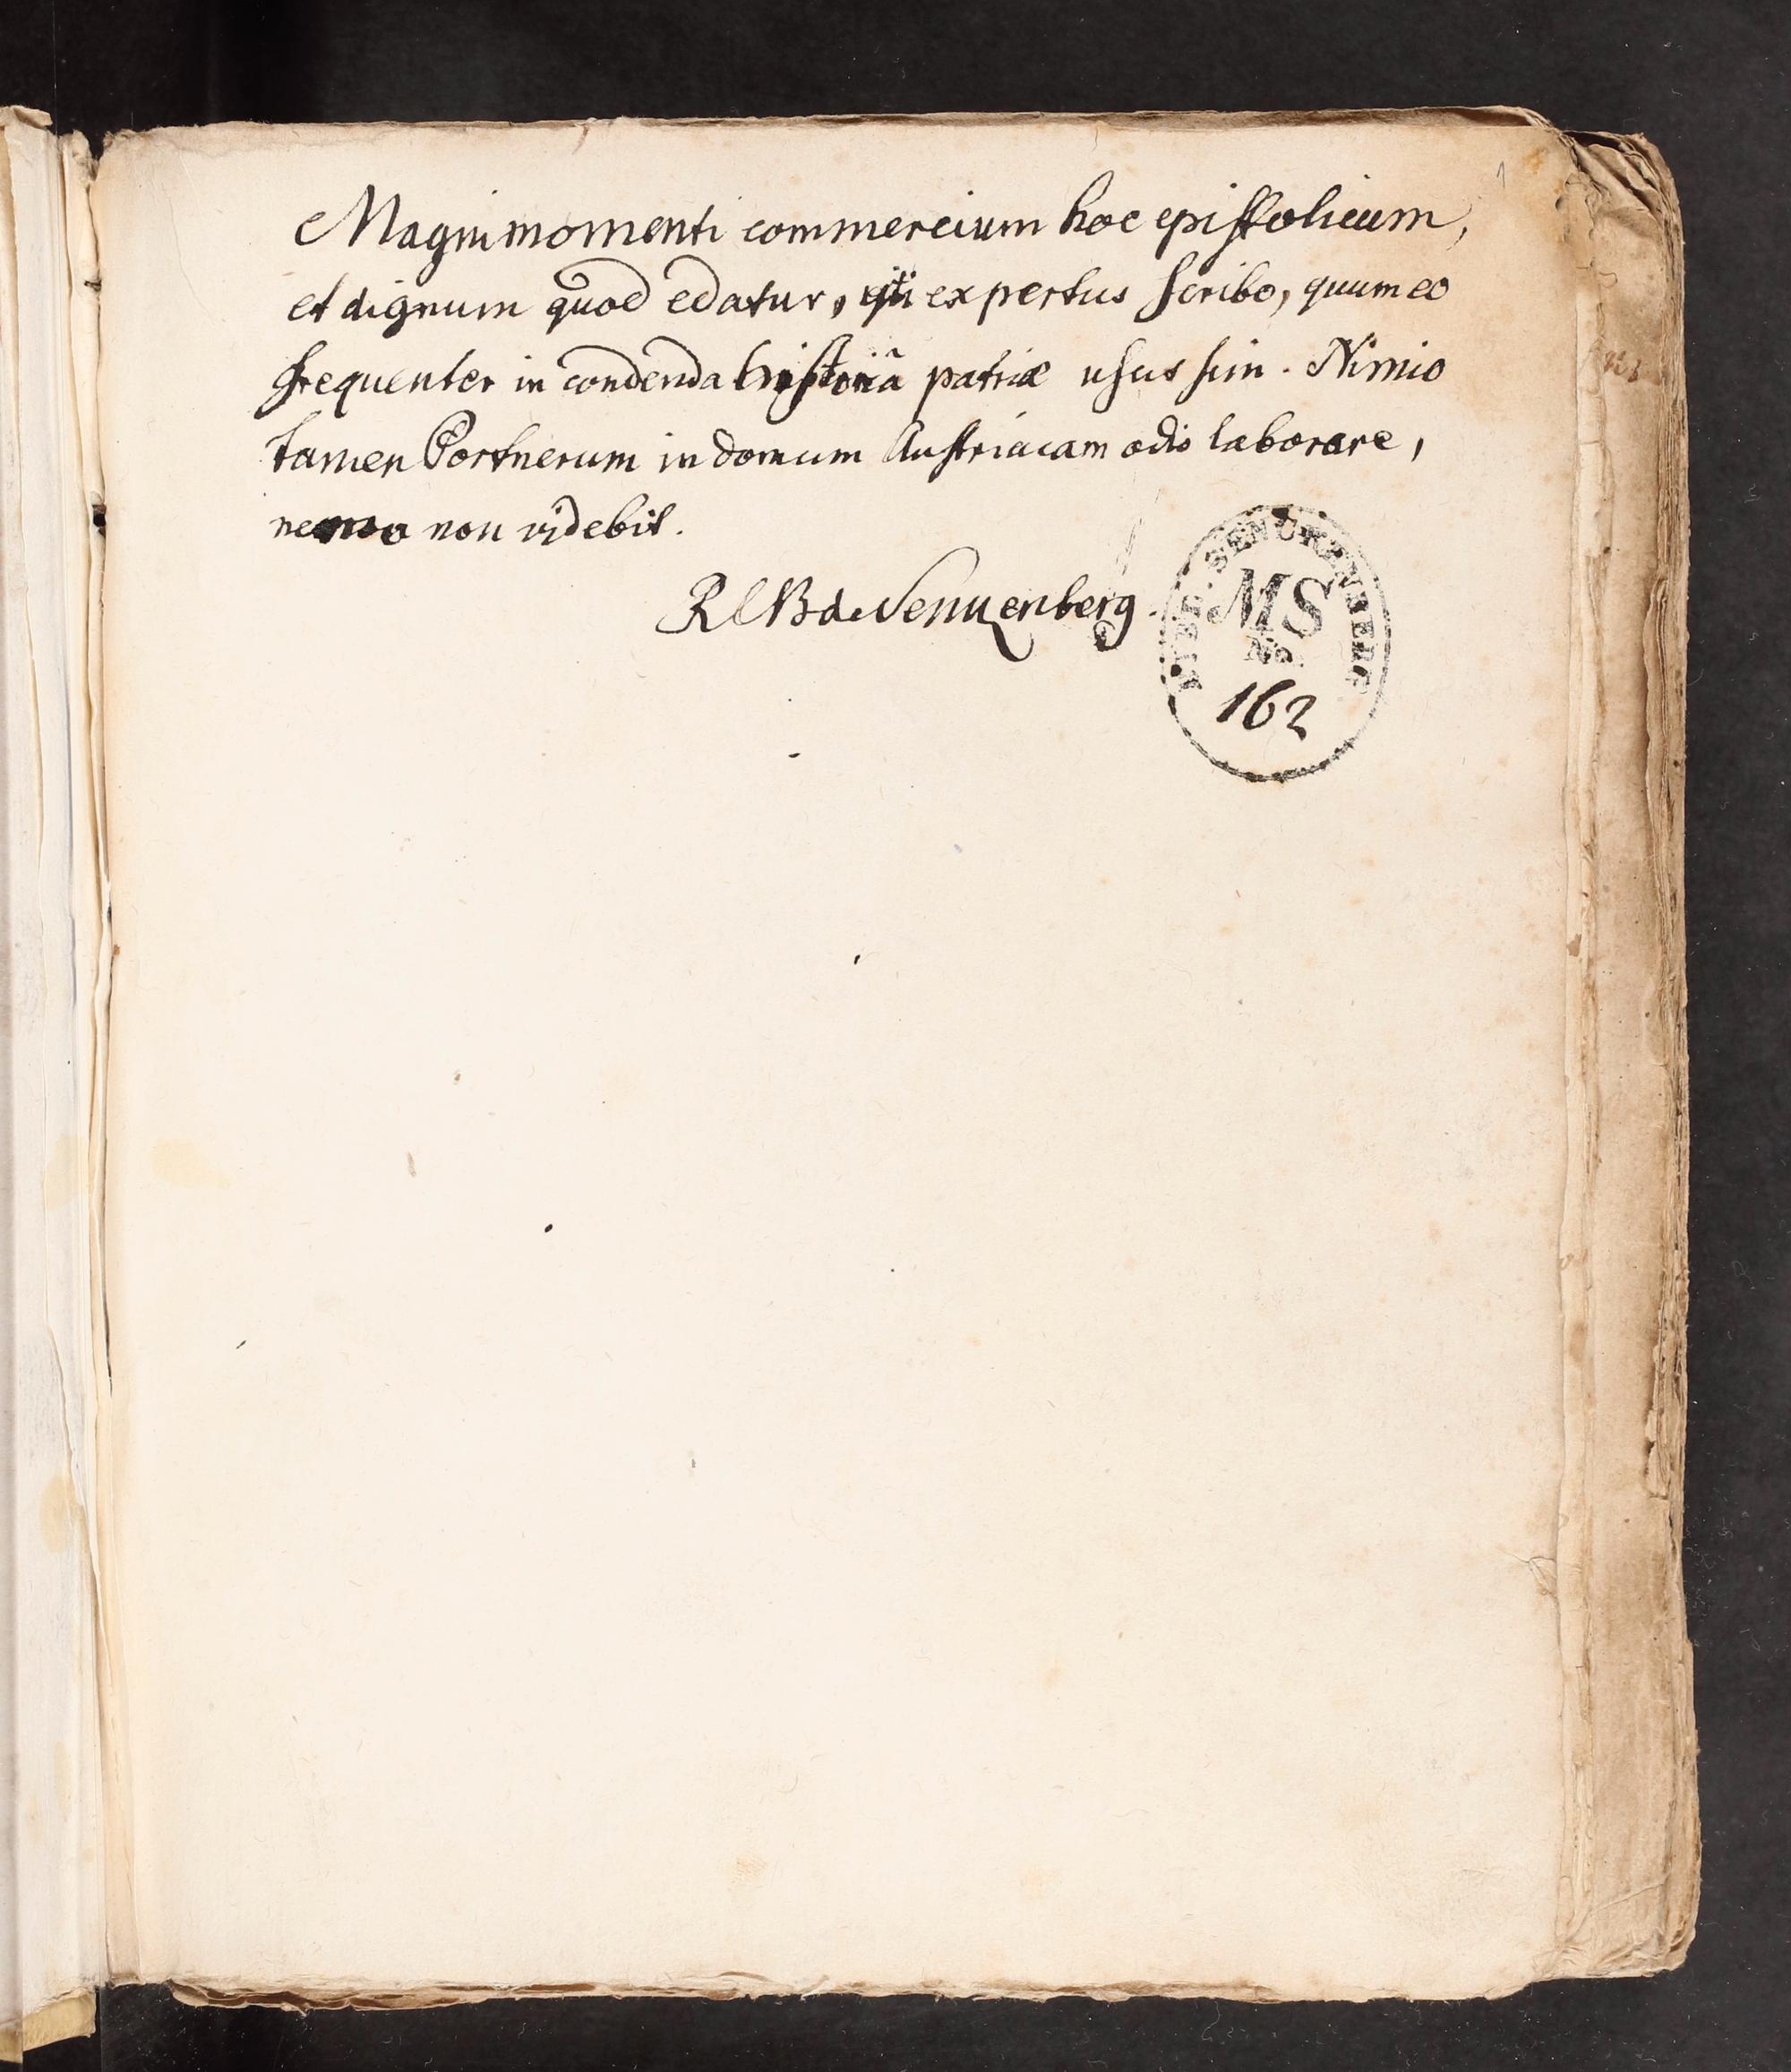 1
Magni momenti commercium hoc epistolicum,
et dignum quod edatur, uti expertus scribo, quum eo
frequenter in condenda historiâ patriæ usus sim. Nimio
tamen Portnerum in domum Austriacam odio laborare,
nemo non videbit.
R L B de Senkenberg.
BIBL. SENCKENBERG
MS
No
162